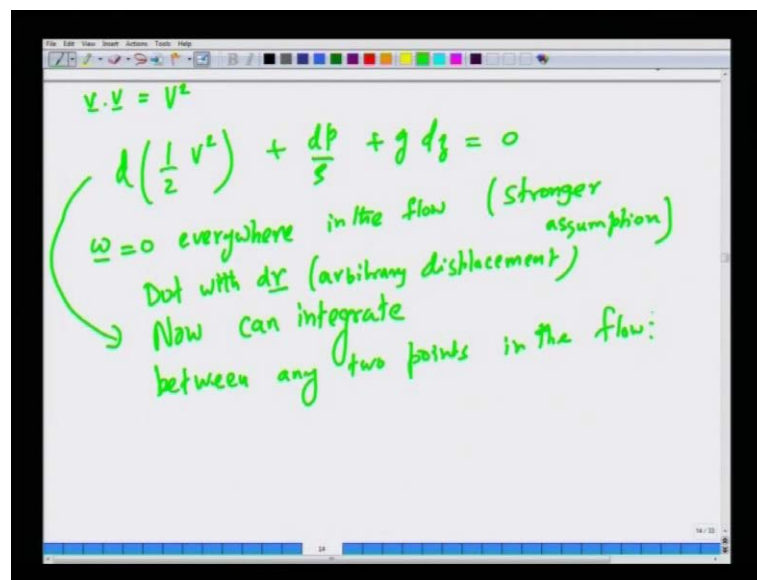 File Edit View Insert Actions Tools Help
v . v = V²
d(1/2 V²) + dp/ρ + g dz = 0
ω = 0 everywhere in the flow (stronger assumption)
Dot with dr (arbitrary displacement)
Now can integrate
between any two points in the flow:
14/33
14